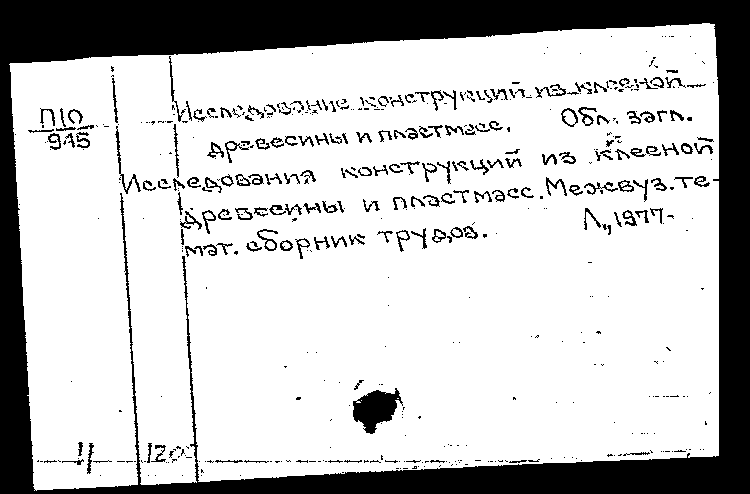 П10
915
Исследование конструкций из клееной
древесины и пластмасс. Обл. загл.
Исследования конструкций из клееной
древесины и пластмасс. Межвуз. те-
мат. сборник трудов. Л., 1977-